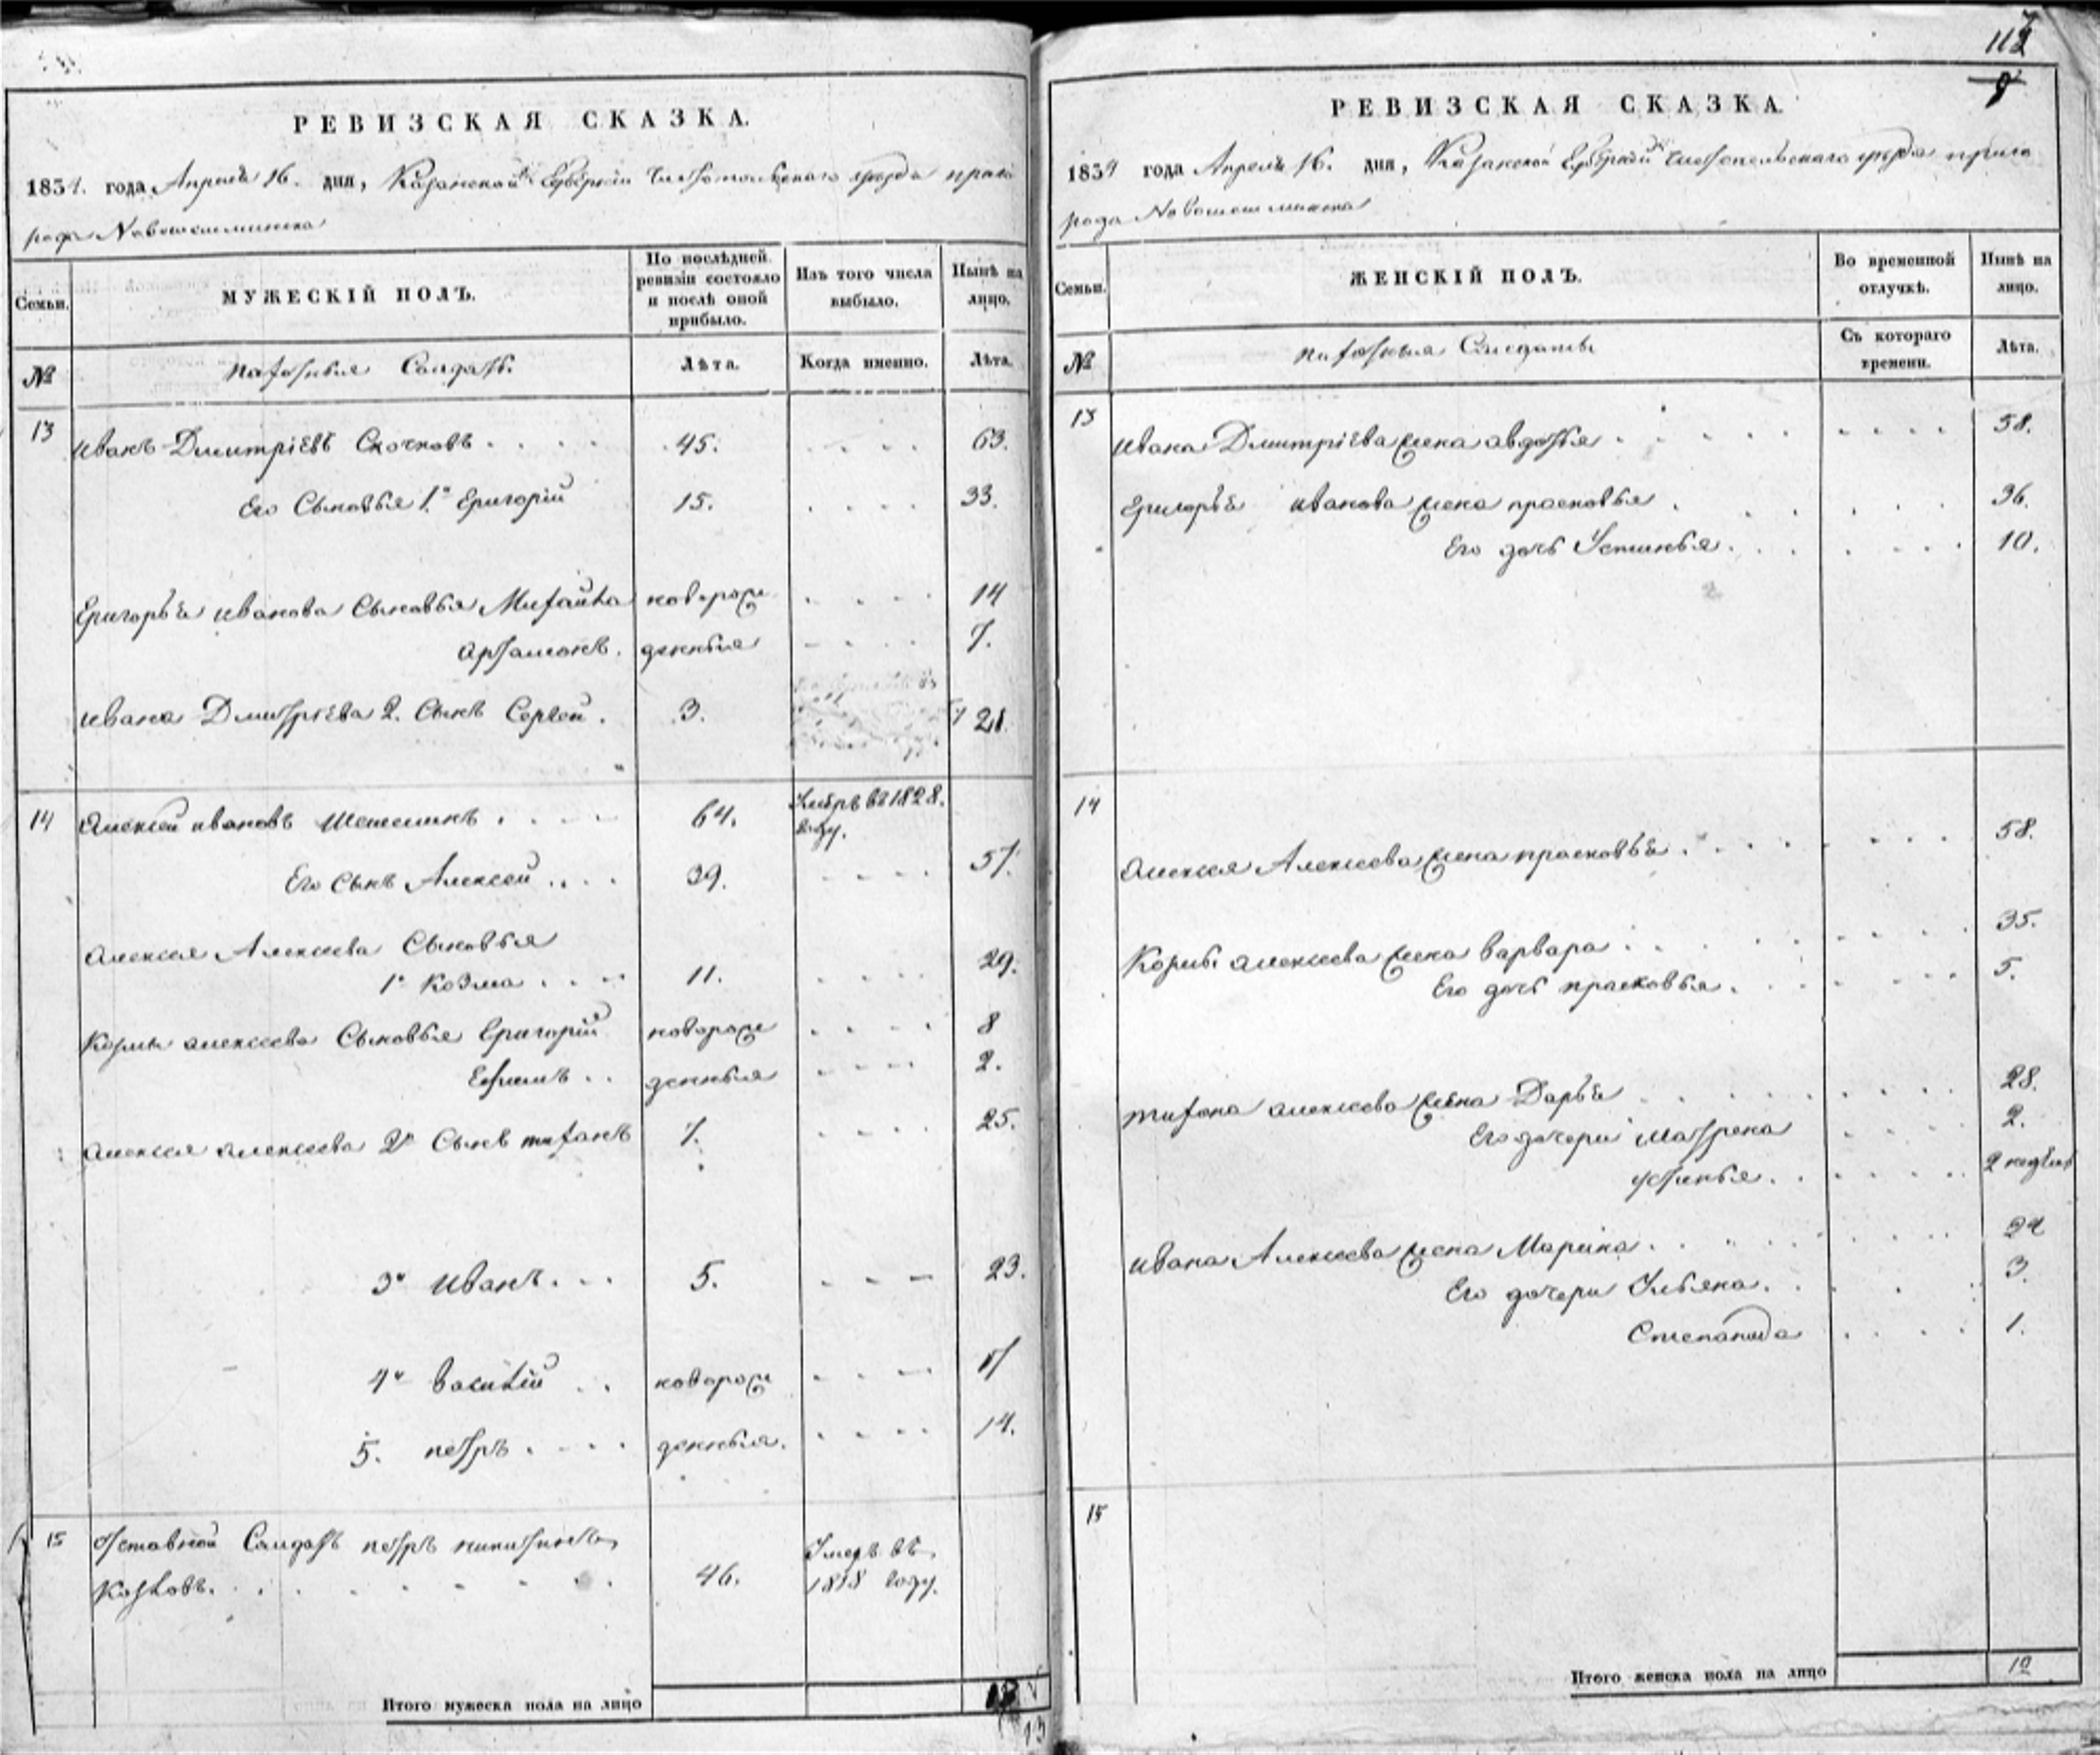 РЕВИЗСКАЯ СКАЗКА.
1834. года Апреля 16. дня, Казанской Губернии Чистопольскаго уезда приго
рода Новошешминска
Семьи.
МУЖЕСКІЙ ПОЛЪ.
По послѣдней ревизіи состояло и послѣ оной прибыло.
Изъ того числа выбыло.
Нынѣ на лицо.
№
пахотныя Солдаты.
Лѣта.
Когда именно.
Лѣта.
13
Иванъ Дмитріевъ Скочковъ . . . . 45. . . . . 63.
Его Сыновья 1й Григорій 15. . . . . 33.
Григорья Иванова Сыновья Михайла новорож . . . . 14
Артамонъ. денныя . . . . 7.
Ивана Дмитріева 2. Сынъ Сергей. 3. 21
14
Алексей Ивановъ Шешминъ . . . . 64. Умеръ въ 1828.
году.
Его Сынъ Алексей . . . . 39. . . . . 57.
Алексея Алексеева Сыновья
1й Козма . . . . 11. . . . . 29.
Козмы Алексеева Сыновья Григорій новорож . . . . 8
Ефимъ . . денныя . . . . 2.
Алексея Алексеева 2й Сынъ Тихонъ 7. . . . . 25.
3й Иванъ . . . 5. . . . 23.
4й Василій . . новорож . . . . 17
5. Петръ . . . . денныя. . . . . 14.
15
Отставной Солдатъ Петръ Никитинъ
Козловъ. . . . . . . . 46. Умеръ въ
1818 году.
Итого мужеска пола на лицо
13
112
9
РЕВИЗСКАЯ СКАЗКА.
1834 года Апреля 16. дня, Казанской Губернии Чистопольскаго уезда приго
рода Новошешминска
Семьи.
ЖЕНСКІЙ ПОЛЪ.
Во временной отлучкѣ.
Нынѣ на лицо.
№
пахотныя Солдаты
Съ котораго времени.
Лѣта.
13
Ивана Дмитріева жена Авдотья . . . . . 58.
Григорья Иванова жена Прасковья . . . . . 36.
Его дочь Устинья . . . . . 10.
14
Алексея Алексеева жена Прасковья . . . . . 58.
Козмы Алексеева жена Варвара . . . . . 35.
Его дочь Прасковья . . . . . 5.
Тихона Алексеева жена Дарья . . . . . 28.
Его дочери Матрена . . . . 2.
Устинья . . . . . 2 недѣли
Ивана Алексеева жена Марина . . . . . 24
Его дочери Ульяна . . . . 3.
Степанида . . . . 1.
15
Итого женска пола на лицо 12